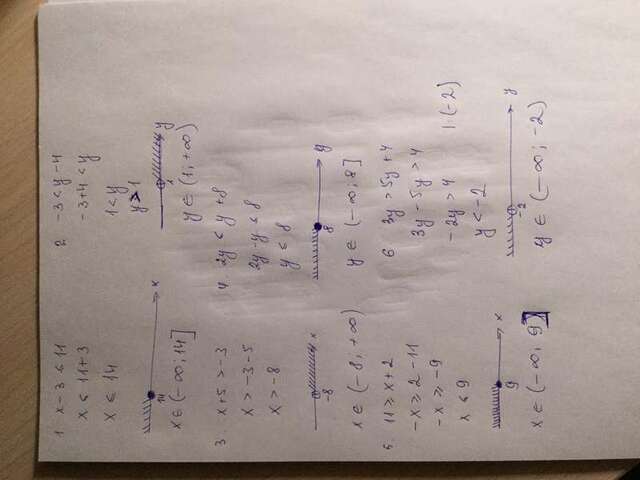 1 x - 3 ≤ 11
x ≤ 11 + 3
x ≤ 14
14 x
x ∈ (-∞; 14]
2 -3 < y - 4
-3 + 4 < y
1 < y
y > 1
1 y
y ∈ (1; +∞)
3 x + 5 > -3
x > -3 - 5
x > -8
-8 x
x ∈ (-8; +∞)
4 2y ≤ y + 8
2y - y ≤ 8
y ≤ 8
8 y
y ∈ (-∞; 8]
5. 11 ≥ x + 2
-x ≥ 2 - 11
-x ≥ -9
x ≤ 9
9 x
x ∈ (-∞; 9]
6 3y > 5y + 4
3y - 5y > 4
-2y > 4 | : (-2)
y < -2
-2 y
y ∈ (-∞; -2)